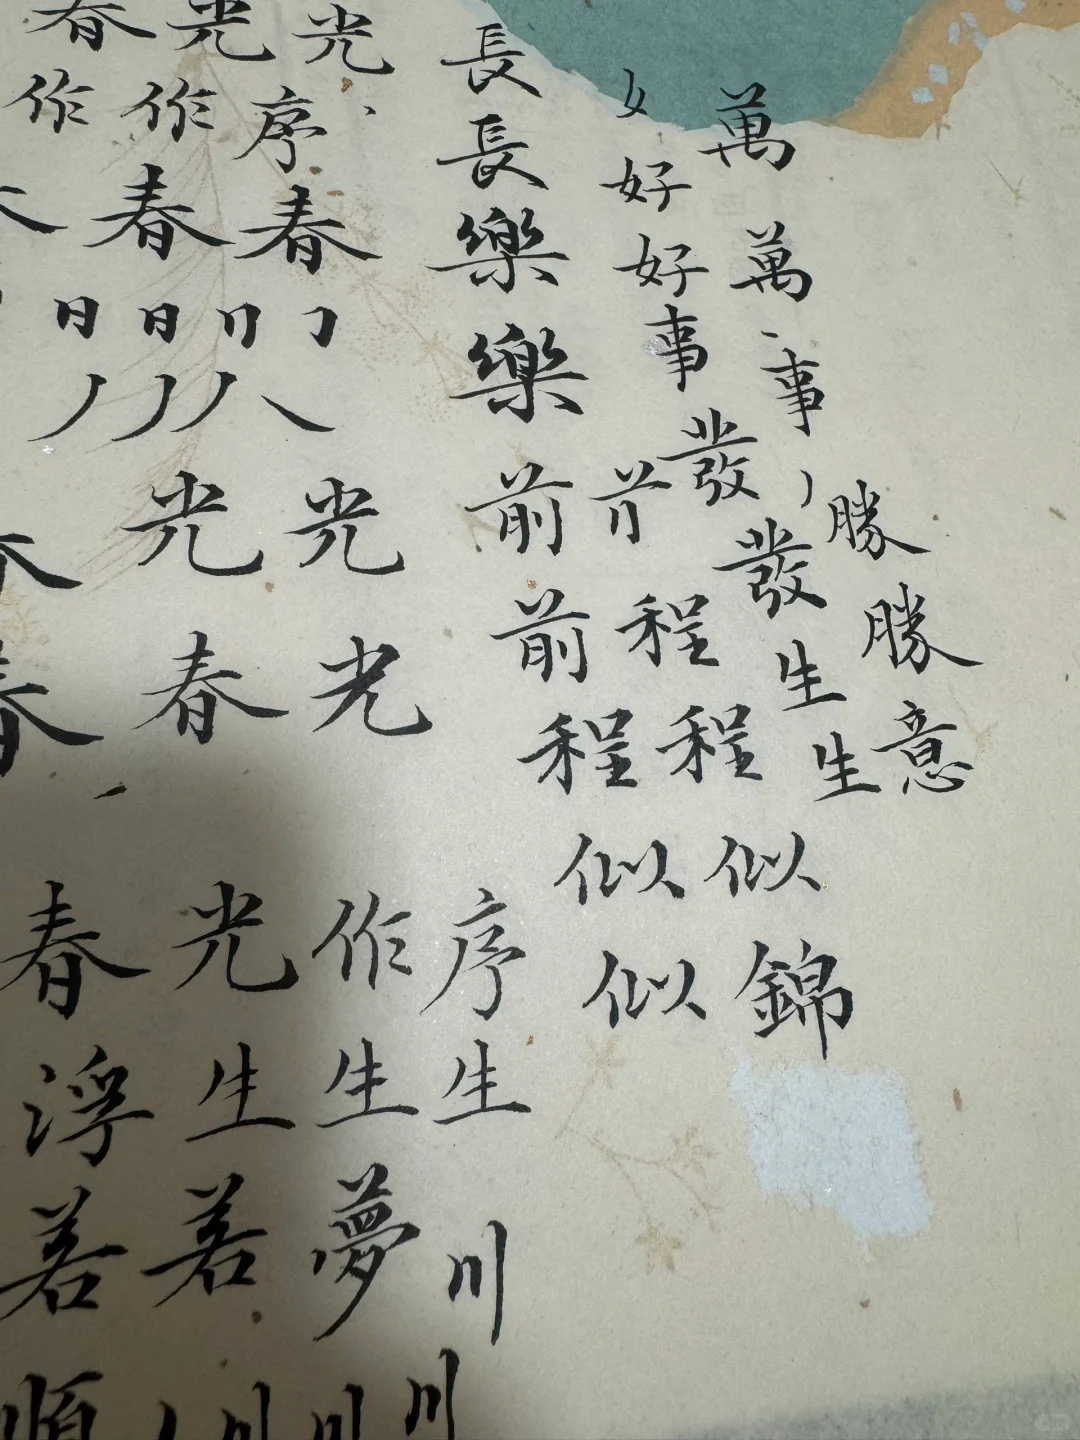 春光光
作作序
春春
日日
光光
春光
春光作序
浮生生生
若若夢川
順川川川
長長樂樂前前程似似
好好事發發生生
程程似錦
萬萬事勝勝意